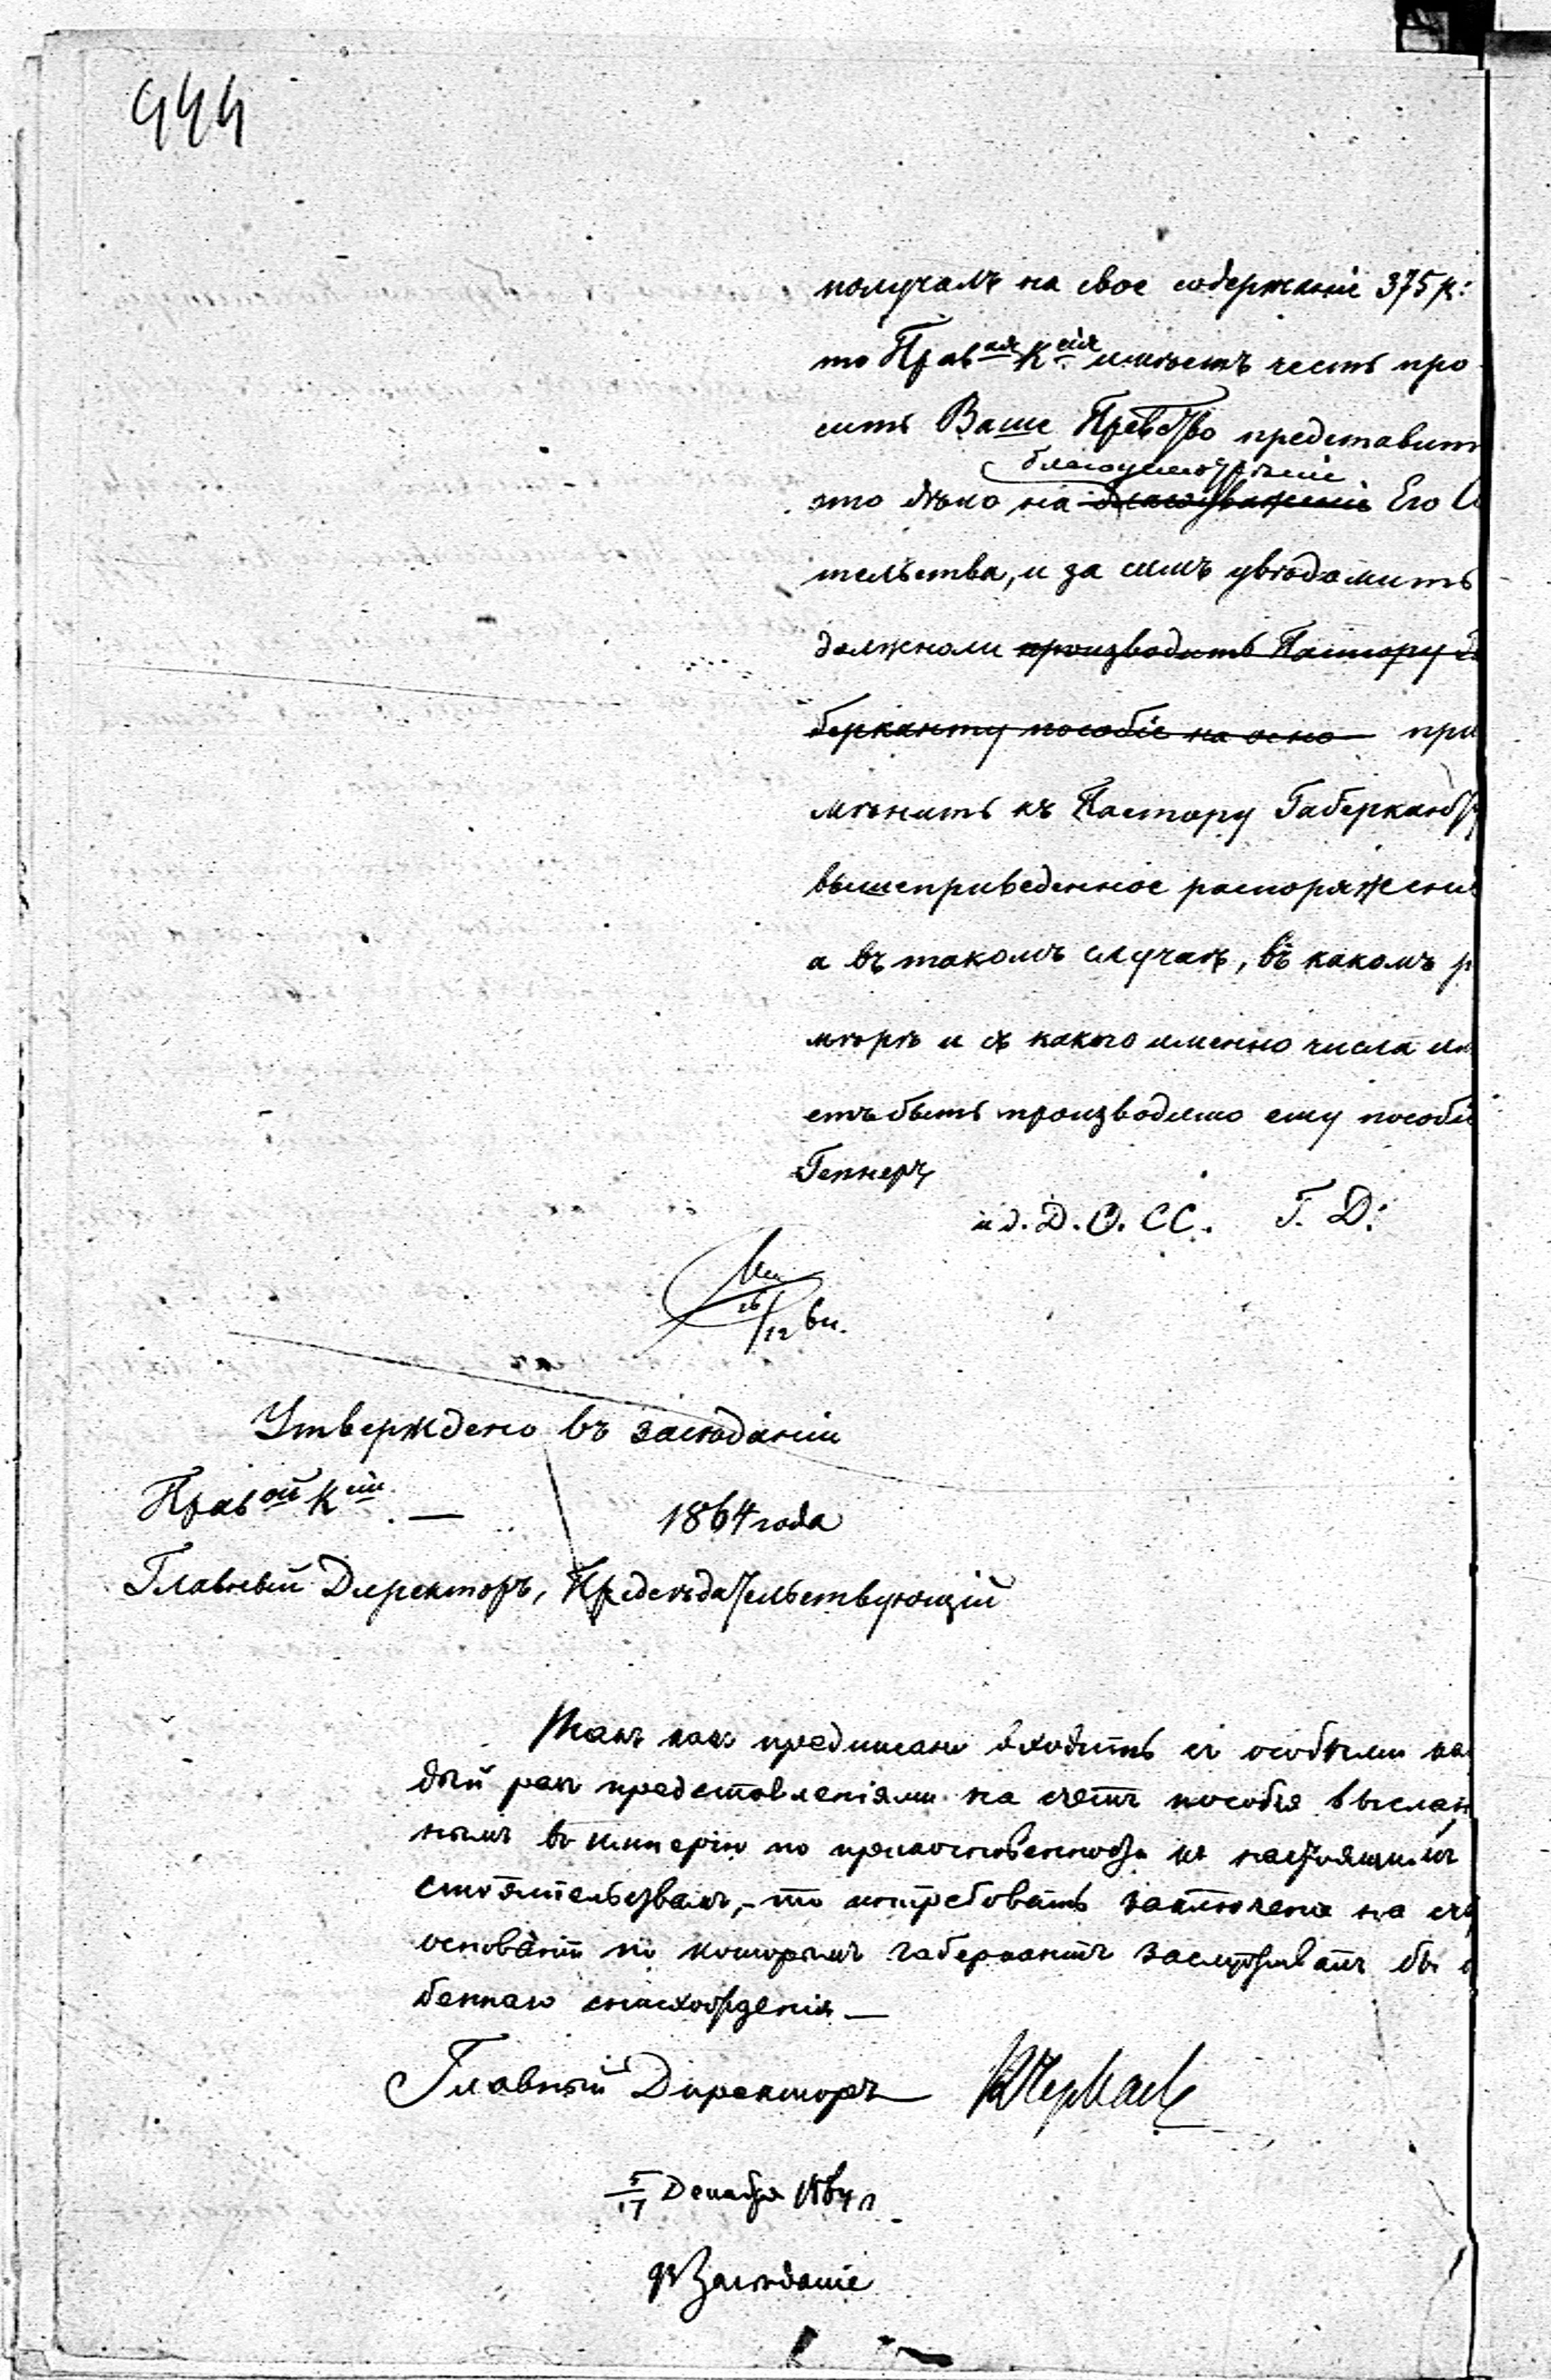 444
получалъ на свое содержаніе 375 р:
то Прав ая К сія имѣетъ честь про
сить Ваше Прев-ство представит
благоусмотрѣніе
это дѣло на благоуваженіе Его С
тельства, и за симъ увѣдомить
должноли производить Пастору Га
берканту пособіе на осно при
мѣнить къ Пастору Габерканту
вышеприведенное распоряжені
а въ такомъ случаѣ, въ какомъ р
мѣрѣ и съ какого именно числа им
етъ быть производимо ему пособі
Геннеръ
и д. Д. О. СС. Г. Д:
16/12 64.
Утверждено въ засѣданіи
Прав ой К сіи. — 1864 года
Главный Директоръ, Предсѣдательствующій
Такъ какъ предписано входить съ особыми ка
дый разъ представленіями на счетъ пособія выслан
нымъ въ имперію по прикосновенности къ настоящимъ
стоятельствамъ, - то истребовать заключенія на сч
основаній по которымъ Габеркантъ заслуживалъ бы о
беннаго снисхожденія —
Главный Директоръ
5/17 Декабря 1864 г.
Засѣданіе